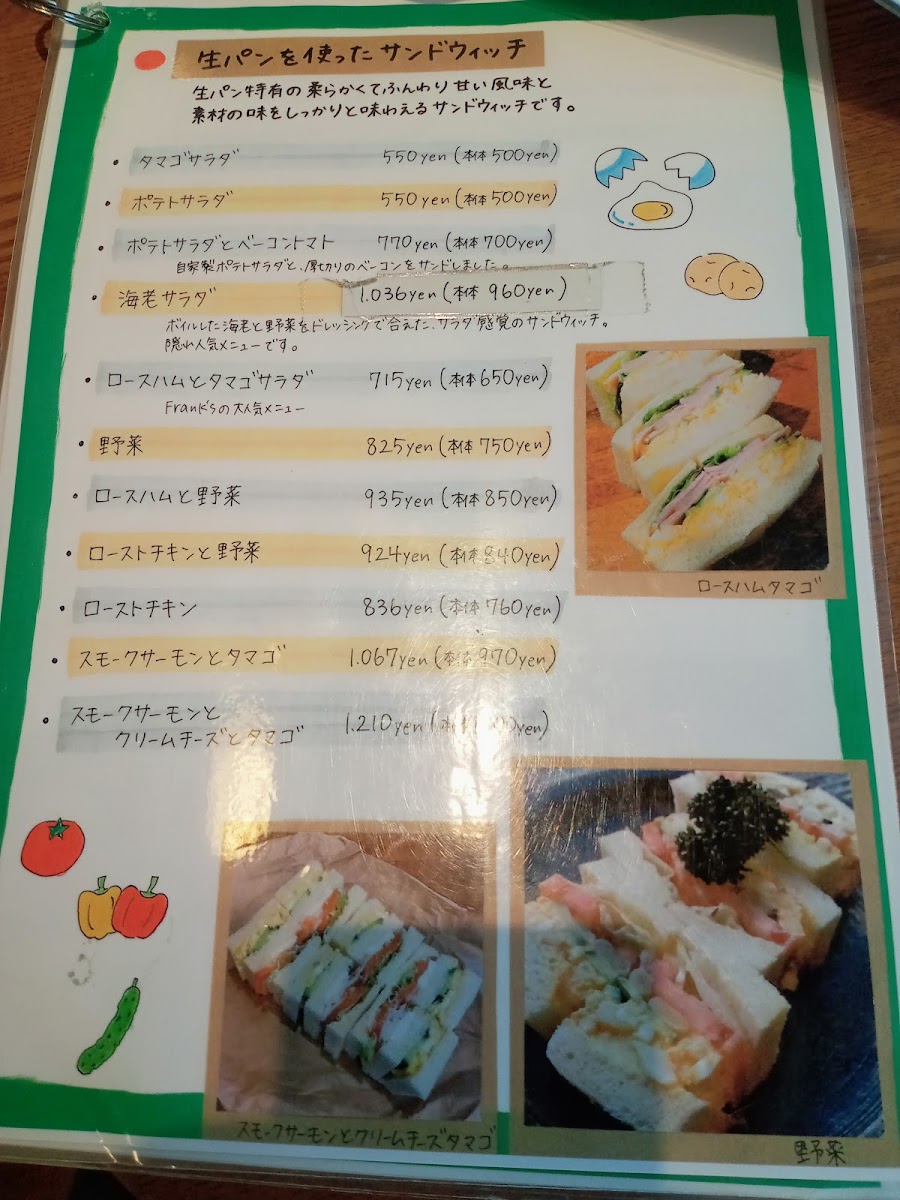 生パンを使ったサンドウィッチ
生パン特有の柔らかくてふんわり甘い風味と
素材の味をしっかりと味わえるサンドウィッチです。
・タマゴサラダ 550yen(本体500yen)
・ポテトサラダ 550yen(本体500yen)
・ポテトサラダとベーコントマト 770yen(本体700yen)
自家製ポテトサラダと、厚切りのベーコンをサンドしました。
・海老サラダ 1.036yen(本体 960yen)
ボイルした海老と野菜をドレッシングで合えた、サラダ感覚のサンドウィッチ。
隠れ人気メニューです。
・ロースハムとタマゴサラダ 715yen(本体650yen)
Frank'sの大人気メニュー
・野菜 825yen(本体750yen)
・ロースハムと野菜 935yen(本体850yen)
・ローストチキンと野菜 924yen(本体840yen)
・ローストチキン 836yen(本体760yen)
・スモークサーモンとタマゴ 1.067yen(本体970yen)
・スモークサーモンと
クリームチーズとタマゴ 1.210yen(本体 00yen)
ロースハムタマゴ
スモークサーモンとクリームチーズタマゴ
野菜